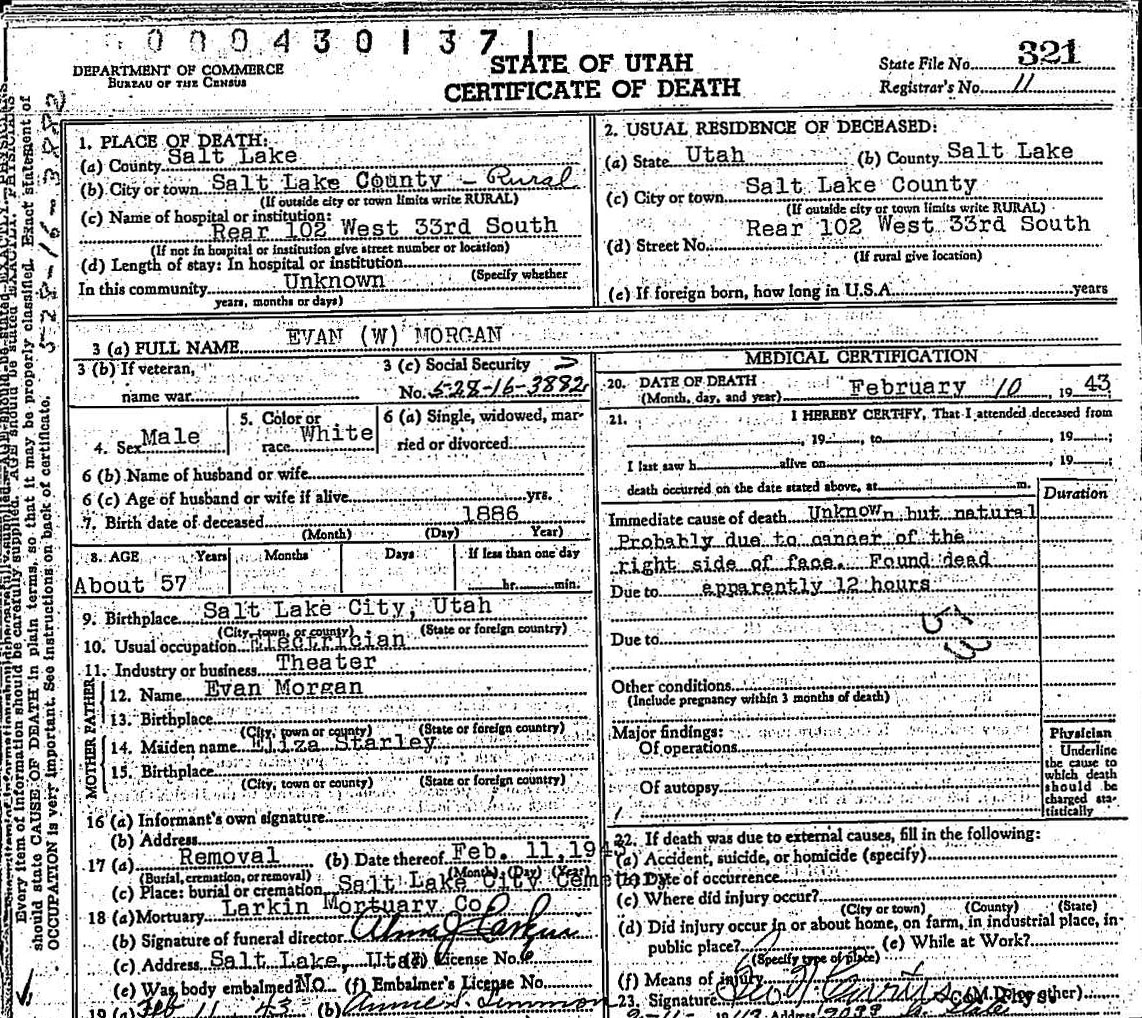 000430137 1
DEPARTMENT OF COMMERCE
BUREAU OF THE CENSUS
STATE OF UTAH
CERTIFICATE OF DEATH
State File No. 321
Registrar's No. 11
Every item of information should be carefully supplied. AGE should be stated EXACTLY. PHYSICIANS
should state CAUSE OF DEATH in plain terms, so that it may be properly classified. Exact statement of
OCCUPATION is very important. See instructions on back of certificate.
5-28-16-3882
1. PLACE OF DEATH:
(a) County Salt Lake
(b) City or town Salt Lake County - Rural
(If outside city or town limits write RURAL)
(c) Name of hospital or institution:
Rear 102 West 33rd South
(If not in hospital or institution give street number or location)
(d) Length of stay: In hospital or institution
(Specify whether
In this community Unknown
years, months or days)
2. USUAL RESIDENCE OF DECEASED:
(a) State Utah (b) County Salt Lake
(c) City or town Salt Lake County
(If outside city or town limits write RURAL)
(d) Street No. Rear 102 West 33rd South
(If rural give location)
(e) If foreign born, how long in U.S.A. years
3 (a) FULL NAME EVAN (W) MORGAN
3 (b) If veteran,
name war
3 (c) Social Security
No. 528-16-3882
4. Sex Male
5. Color or
race White
6 (a) Single, widowed, mar-
ried or divorced
6 (b) Name of husband or wife
6 (c) Age of husband or wife if alive yrs.
7. Birth date of deceased 1886
(Month) (Day) Year)
8. AGE Years Months Days If less than one day
About 57 hr. min.
9. Birthplace Salt Lake City, Utah
(City, town, or county) (State or foreign country)
10. Usual occupation Electrician
11. Industry or business Theater
FATHER
12. Name Evan Morgan
13. Birthplace
(City, town or county) (State or foreign country)
MOTHER
14. Maiden name Eliza Starley
15. Birthplace
(City, town or county) (State or foreign country)
16 (a) Informant's own signature
(b) Address
17 (a) Removal (b) Date thereof Feb. 11, 1943
(Burial, cremation, or removal) (Month) (Day) (Year)
(c) Place: burial or cremation Salt Lake City Cemetery
18 (a) Mortuary Larkin Mortuary Co
(b) Signature of funeral director Alma J Larkin
(c) Address Salt Lake, Utah (d) License No. 6
(e) Was body embalmed No (f) Embalmer's License No.
19 (a) Feb 11 43 (b) Annie S. Simmon
MEDICAL CERTIFICATION
20. DATE OF DEATH February 10, 1943
(Month, day, and year)
21. I HEREBY CERTIFY, That I attended deceased from
, 19 , to , 19 ;
I last saw h alive on , 19 ;
death occurred on the date stated above, at m.
Duration
Immediate cause of death Unknown but natural
Probably due to canner of the
right side of face. Found dead
Due to epparently 12 hours
Due to
Other conditions
(Include pregnancy within 3 months of death)
Major findings:
Of operations
Of autopsy
Physician
Underline
the cause to
which death
should be
charged sta-
tistically
22. If death was due to external causes, fill in the following:
(a) Accident, suicide, or homicide (specify)
(b) Date of occurrence
(c) Where did injury occur?
(City or town) (County) (State)
(d) Did injury occur in or about home, on farm, in industrial place, in
public place? (e) While at Work?
(Specify type of place)
(f) Means of injury
23. Signature Co. Phys. (M.D. or other)
Address